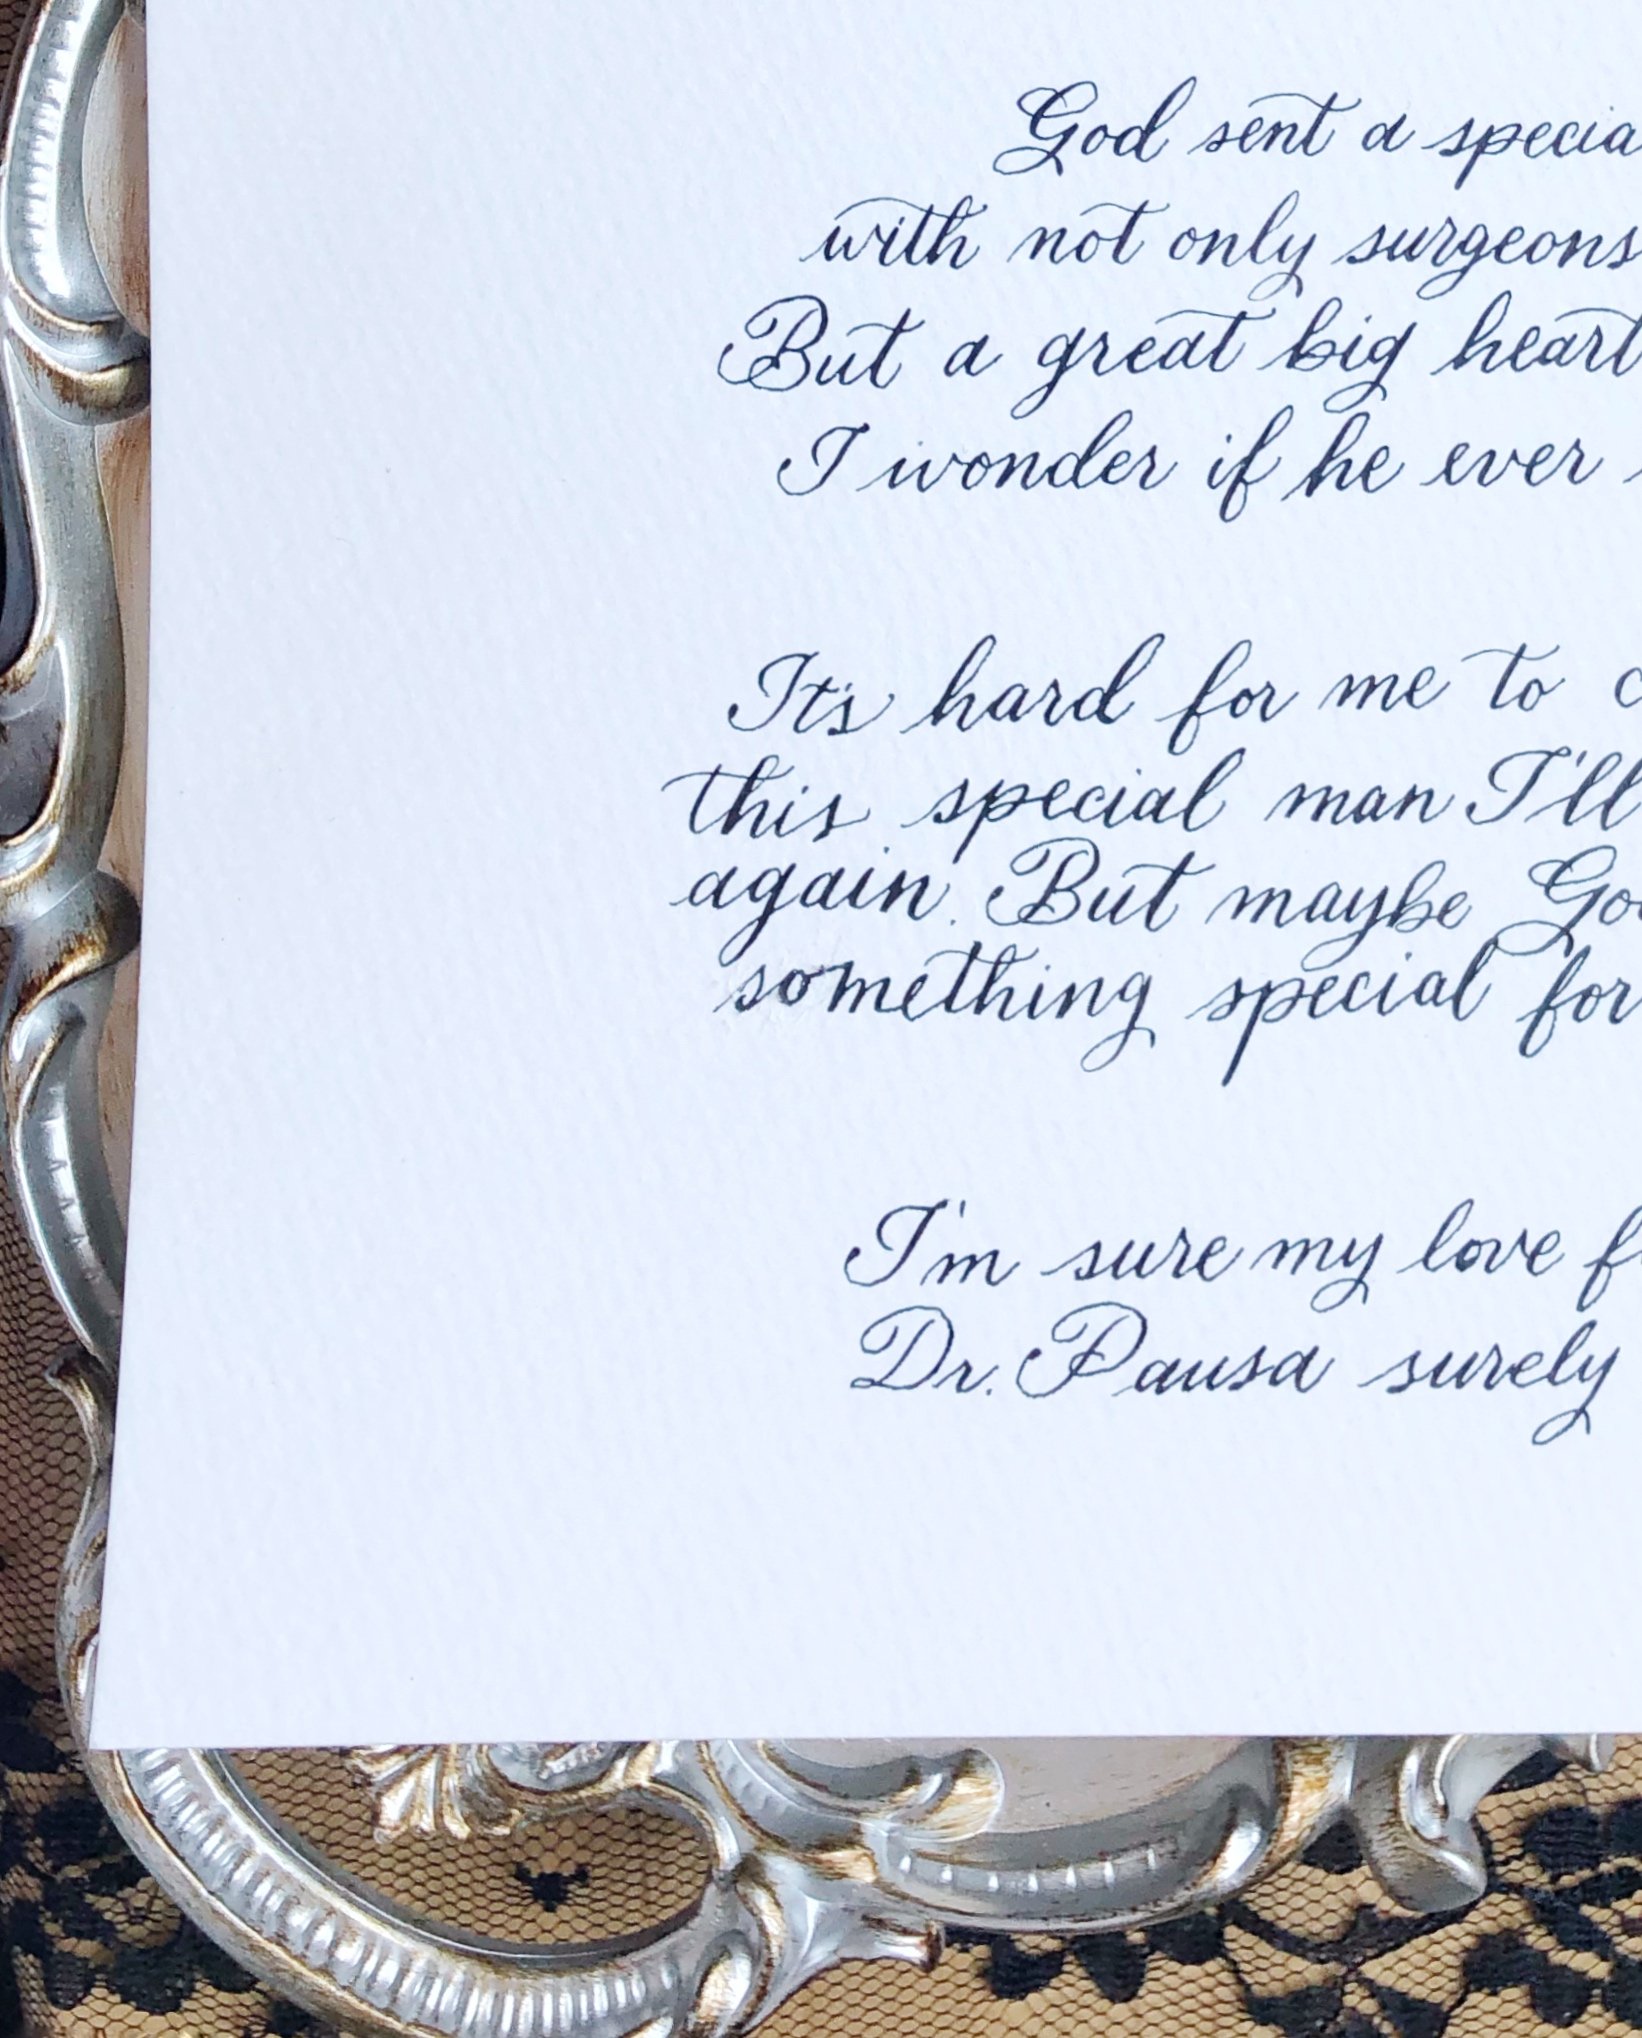 God sent a specia
with not only surgeons
But a great big heart
I wonder if he ever
It's hard for me to
this special man I'll
again. But maybe Go
something special for
I'm sure my love f
Dr. Pausa surely